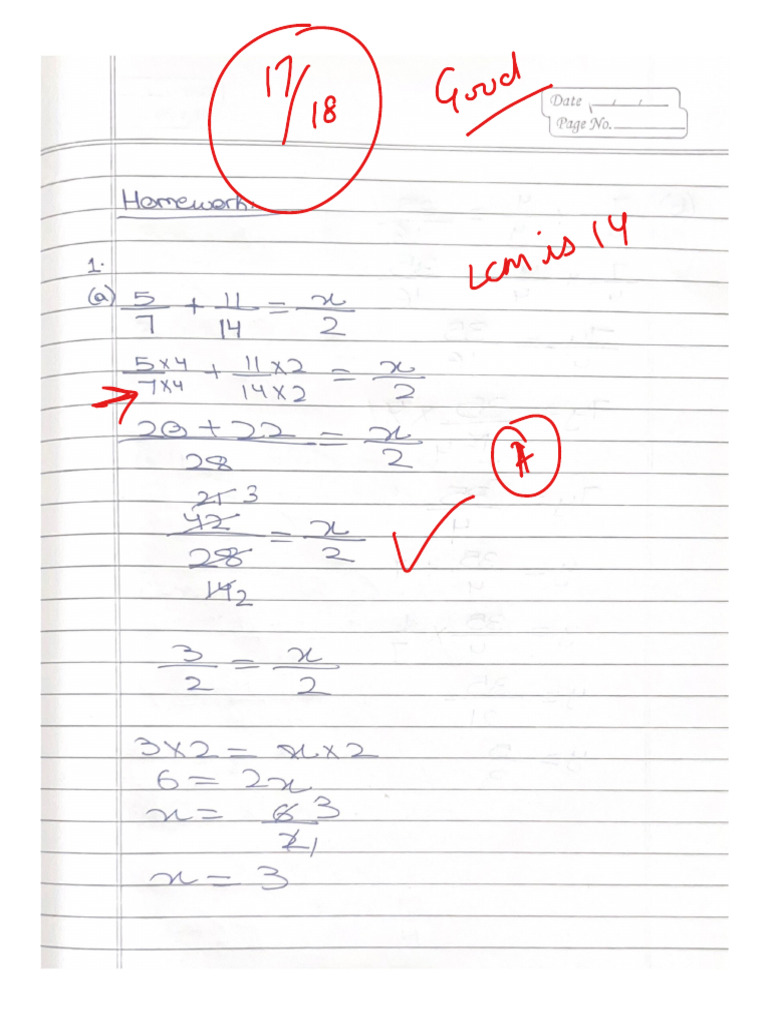 17/18
Good
Date
Page No.
Homework
LCM is 14
1.
(a) 5/7 + 11/14 = x/2
5×4/7×4 + 11×2/14×2 = x/2
20+22/28 = x/2
21 3
42/28 = x/2
14 2
3/2 = x/2
3×2 = x×2
6 = 2x
x = 6 3/2 1
x = 3